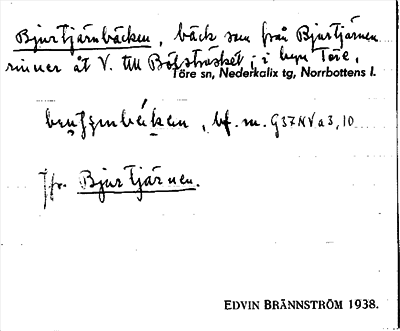 Bjurtjärnbäcken, bäck som från Bjurtjärnen
rinner åt V. till Bölsträsket, i byn Töre,
Töre sn, Nederkalix tg, Norrbottens l.
bf. m. G37NVa3,10
Jfr. Bjurtjärnen.
EDVIN BRÄNNSTRÖM 1938.